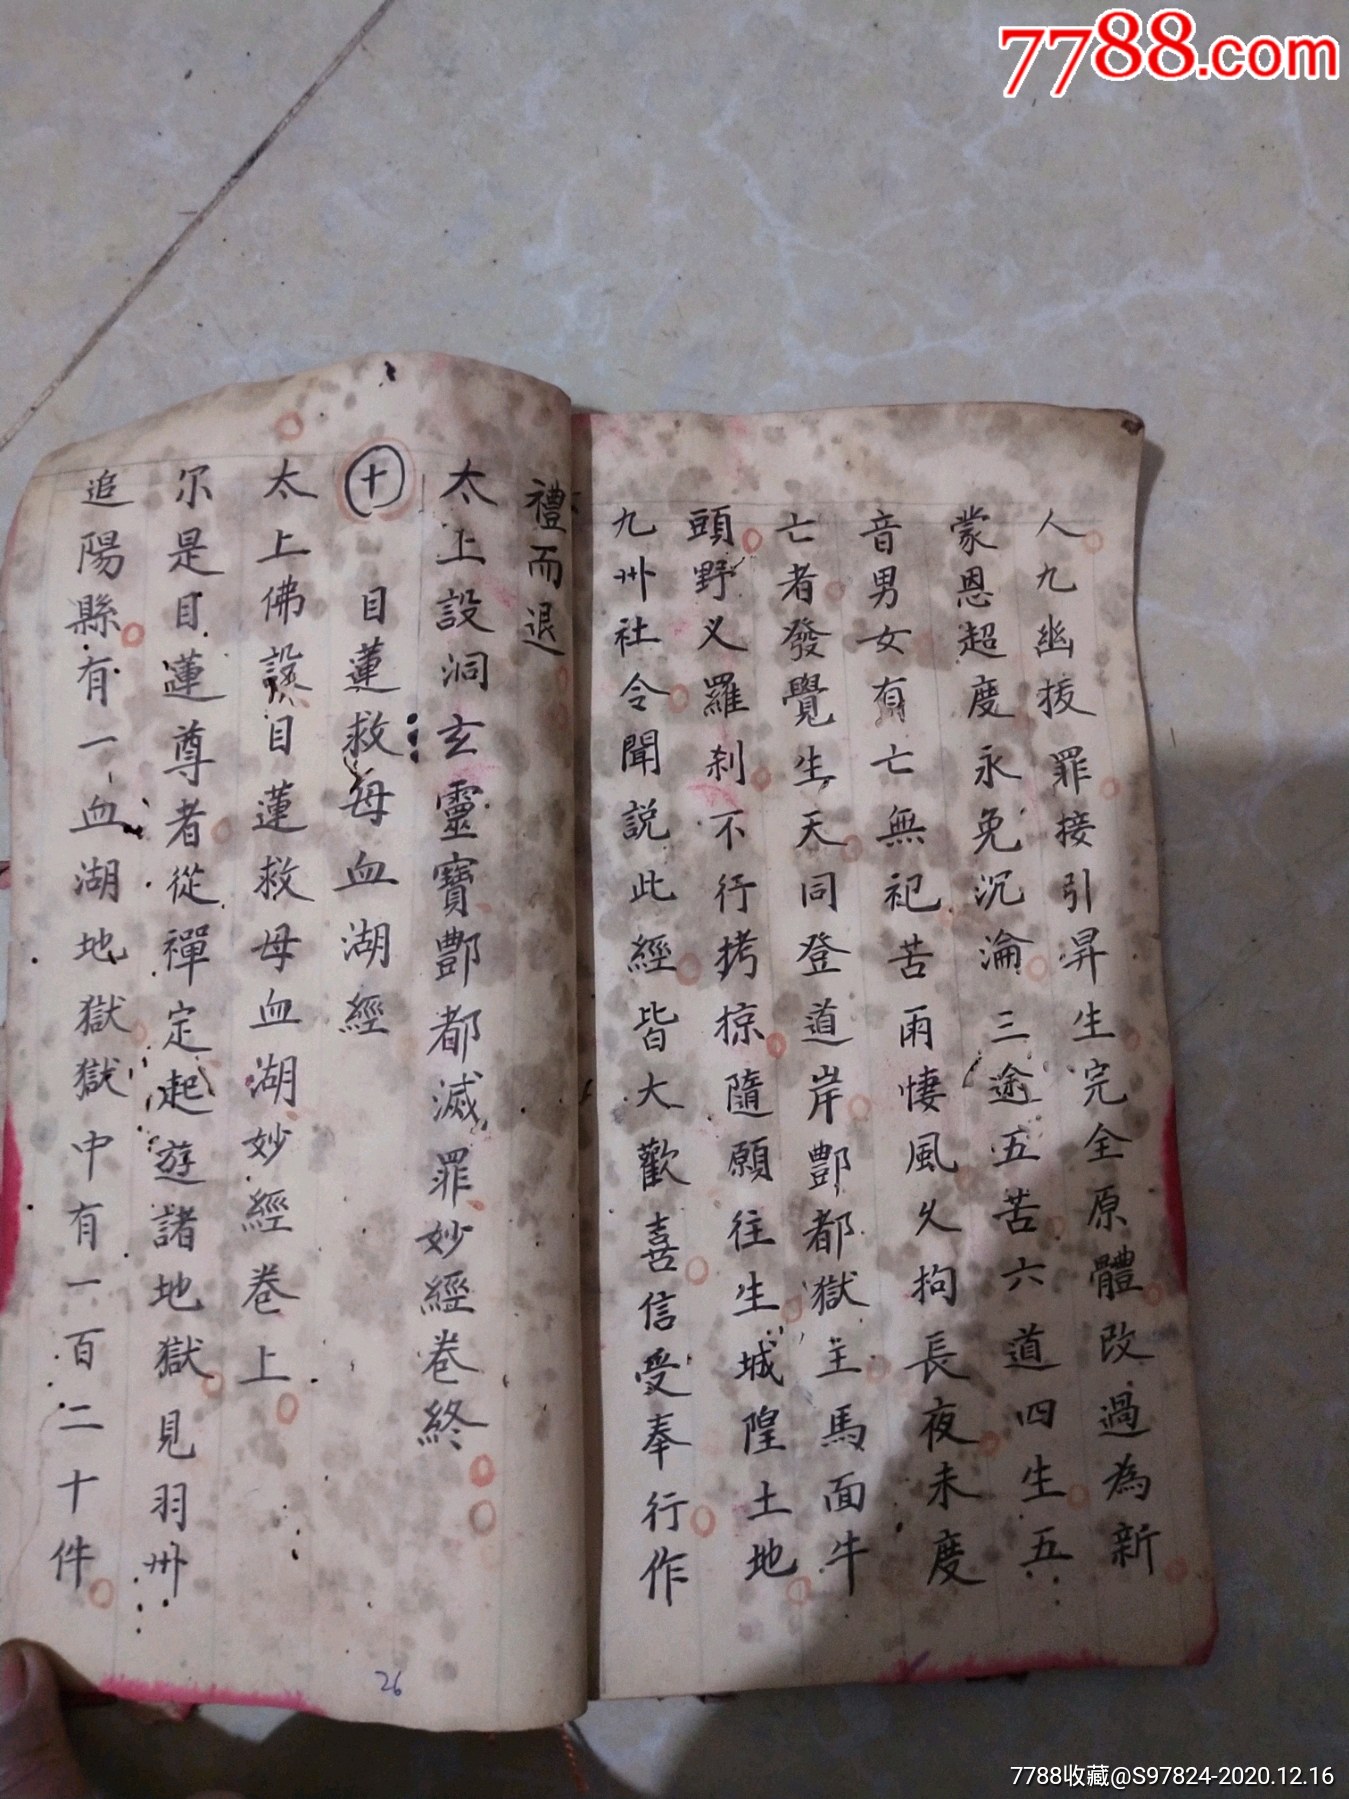 7788.com
人九幽拔罪接引昇生完全原體改過為新
蒙恩超度永免沉淪三途五苦六道四生五
音男女有亡無祀苦雨悽風久拘長夜未度
亡者發覺生天同登道岸酆都獄主馬面牛
頭野义羅刹不行拷掠隨願往生城隍土地
九州社令聞説此經皆大歡喜信受奉行作
禮而退
太上設洞玄靈寶酆都滅罪妙經卷終
十 目蓮救母血湖經
太上佛說目蓮救母血湖妙經卷上
尔是目蓮尊者從禪定起遊諸地獄見羽州
追陽縣有一血湖地獄獄中有一百二十件
26
7788收藏@S97824-2020.12.16